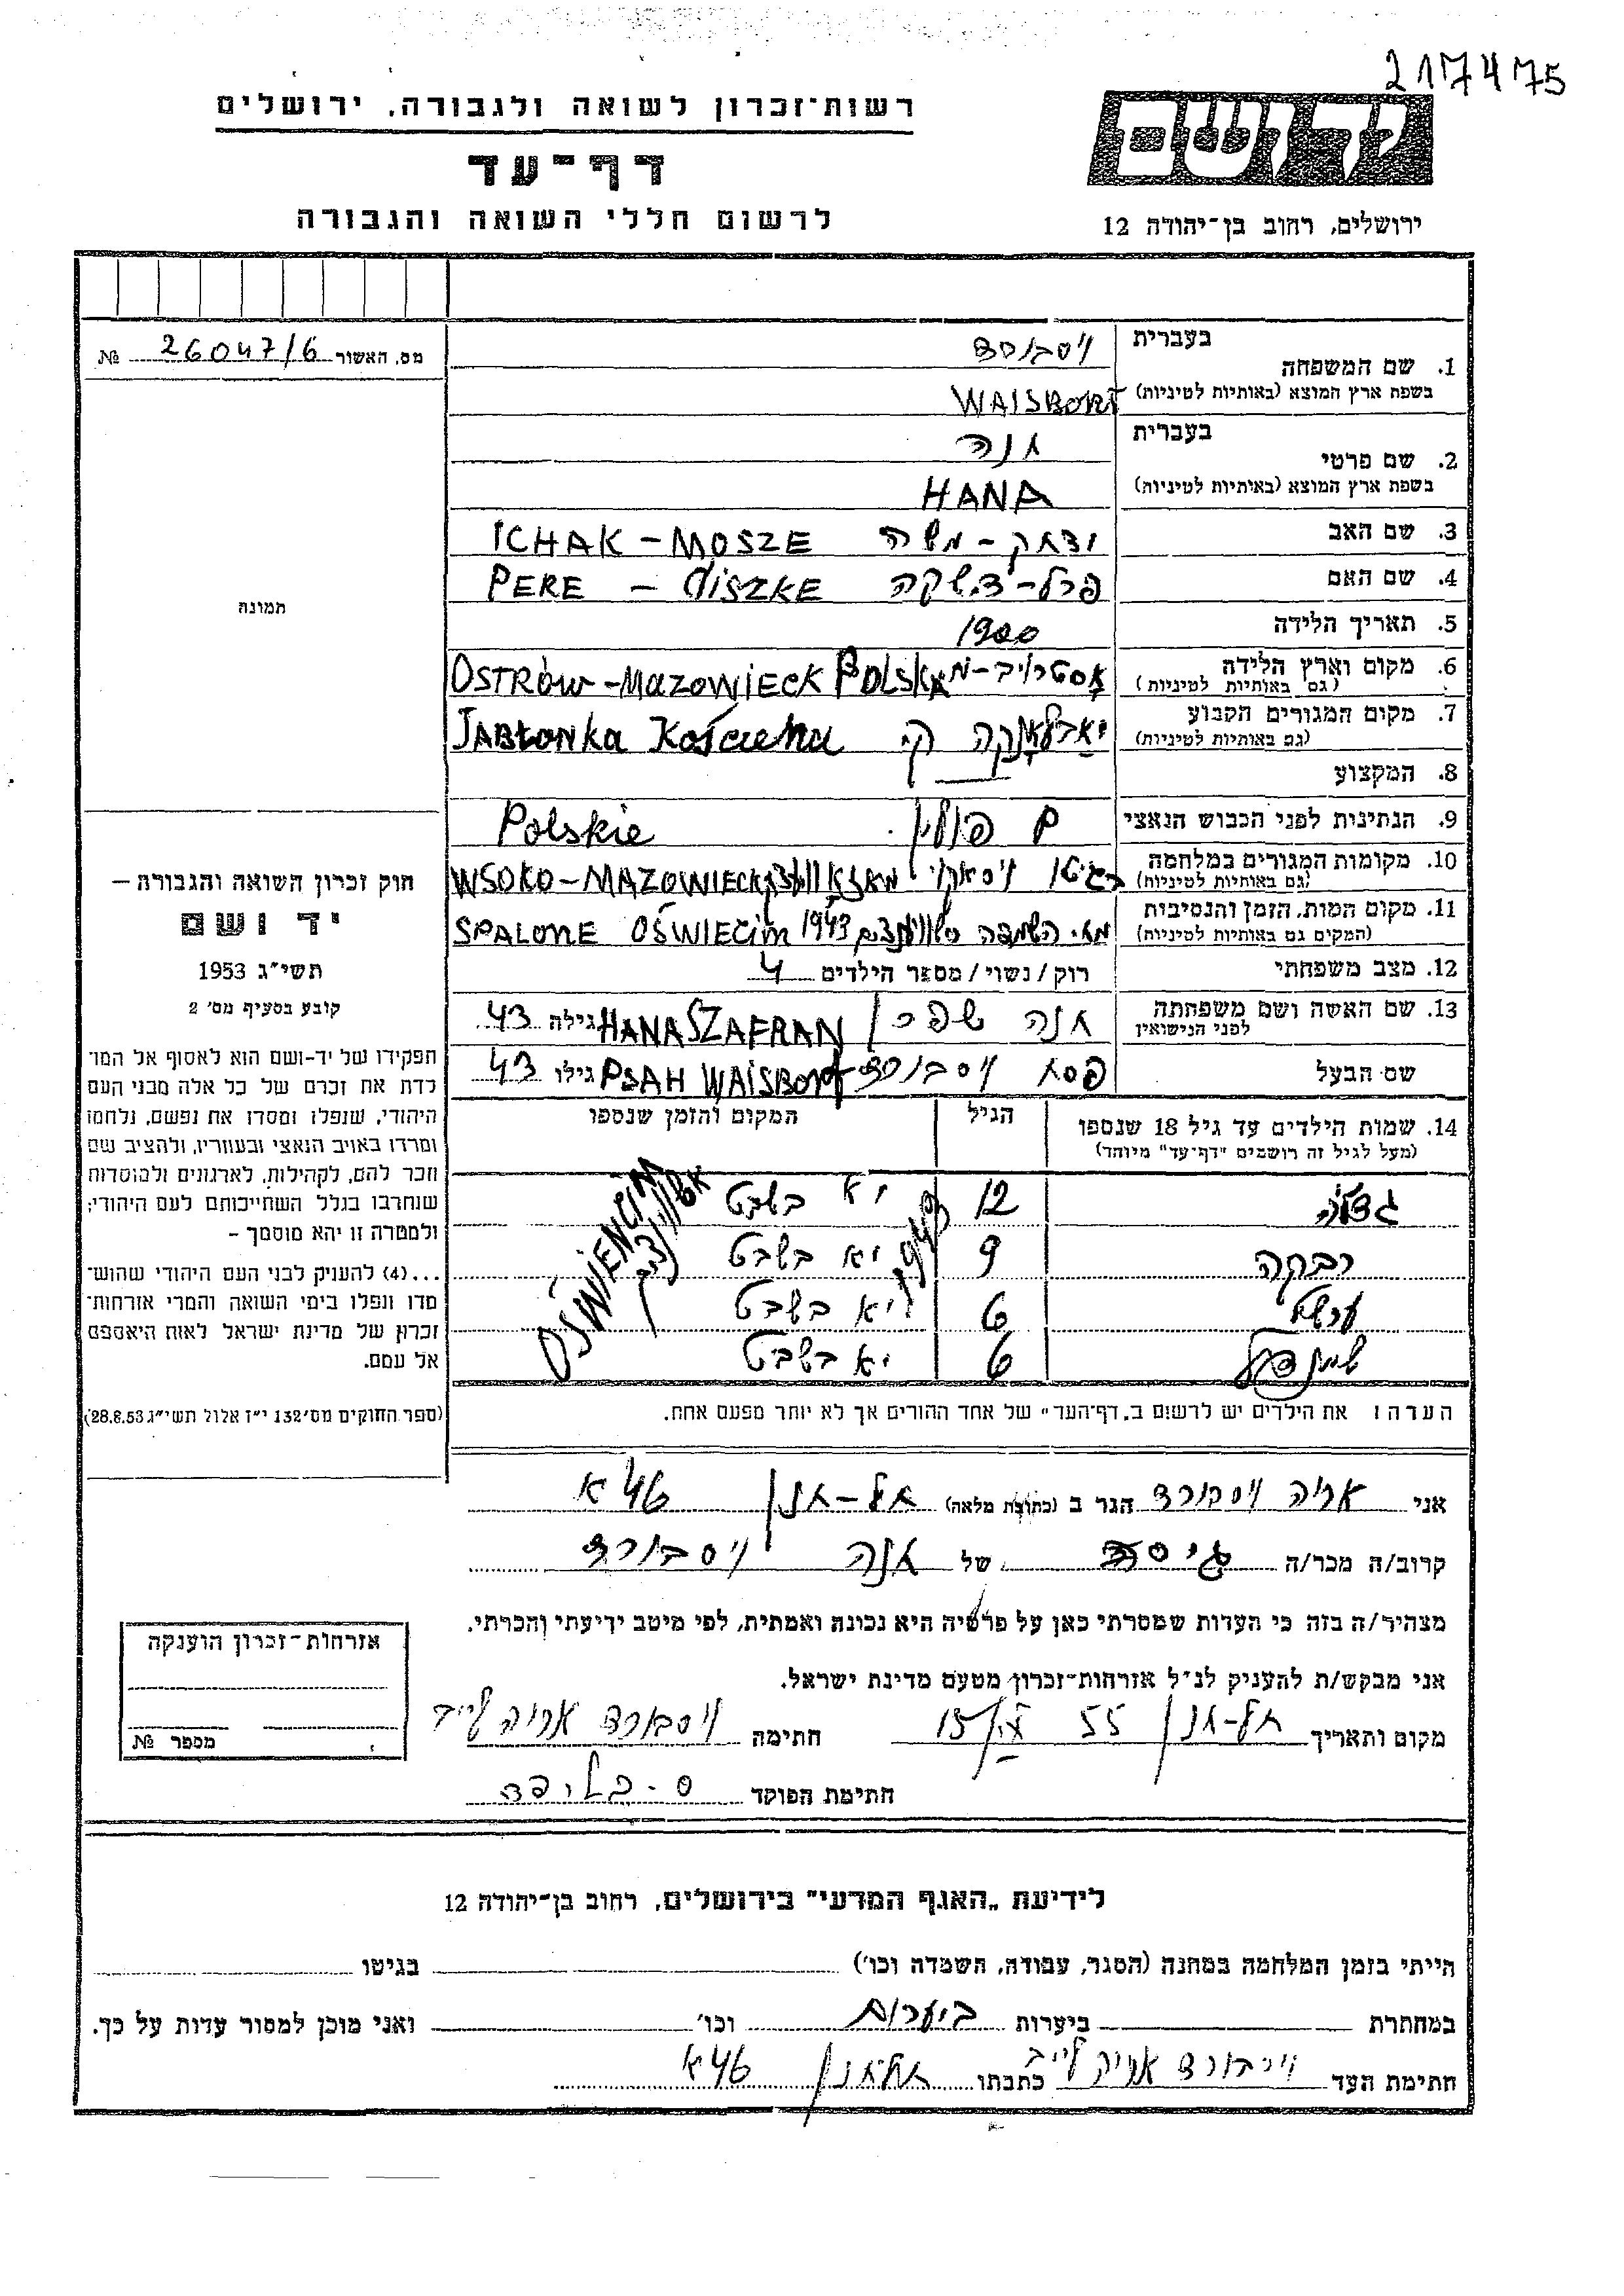 217475
רשות־זכרון לשואה ולגבורה, ירושלים
יד ושם
דף־עד
לרשום חללי השואה והגבורה
ירושלים, רחוב בן־יהודה 12
מס. האשור 26047/6 №
בעברית
1. שם המשפחה
בשפת ארץ המוצא (באותיות לטיניות) WAISBORT
בעברית חנה
2. שם פרטי
בשפת ארץ המוצא (באותיות לטיניות) HANA
3. שם האב יצחק - משה ICHAK - MOSZE
4. שם האם PERE -
5. תאריך הלידה 1900
6. מקום וארץ הלידה
(גם באותיות לטיניות) OSTRÓW - MAZOWIECK POLSKA
7. מקום המגורים הקבוע
(גם באותיות לטיניות) JABŁONKA
8. המקצוע —
9. הנתינות לפני הכבוש הנאצי פולין Polskie
10. מקומות המגורים במלחמה
(גם באותיות לטיניות) WSOKO - MAZOWIECK
11. מקום המות, הזמן והנסיבות
(המקום גם באותיות לטיניות) 1943 SPALONE OŚWIECIM
12. מצב משפחתי רוק / נשוי / מספר הילדים 4
13. שם האשה ושם משפחתה
לפני הנישואין חנה שפרן HANA SZAFRAN גילה 43
שם הבעל פסח ויסבורט PSAH WAISBORT גילו 43
14. שמות הילדים עד גיל 18 שנספו
(מעל לגיל זה רושמים "דף־עד" מיוחד)
הגיל
המקום והזמן שנספו
12 יא בשבט
רבקה 9 יא בשבט
6 יא בשבט
6 יא בשבט
OŚWIENCIM
1943
הערה: את הילדים יש לרשום ב„דף־העד" של אחד ההורים אך לא יותר מפעם אחת.
תמונה
חוק זכרון השואה והגבורה —
יד ושם
תשי"ג 1953
קובע בסעיף מס' 2
תפקידו של יד־ושם הוא לאסוף אל המו־
לדת את זכרם של כל אלה מבני העם
היהודי, שנפלו ומסרו את נפשם, נלחמו
ומרדו באויב הנאצי ובעוזריו, ולהציב שם
וזכר להם, לקהילות, לארגונים ולמוסדות
שנחרבו בגלל השתייכותם לעם היהודי;
ולמטרה זו יהא מוסמך –
...(4) להעניק לבני העם היהודי שהוש־
מדו ונפלו בימי השואה והמרי אזרחות־
זכרון של מדינת ישראל לאות היאספם
אל עמם.
(ספר החוקים מס' 132 י"ז אלול תשי"ג 28.8.53)
אני אריה ויסבורט הגר ב (כתובת מלאה) תל-חנן 46 א
קרוב/ה מכר/ה גיסה של חנה ויסבורט
מצהיר/ה בזה כי העדות שמסרתי כאן על פרטיה היא נכונה ואמתית, לפי מיטב ידיעתי והכרתי.
אני מבקש/ת להעניק לנ"ל אזרחות־זכרון מטעם מדינת ישראל.
מקום ותאריך תל-חנן 55 15 חתימה ויסבורט אריה לייב
חתימת הפוקד
אזרחות־זכרון הוענקה
מספר №
לידיעת „האגף המדעי" בירושלים, רחוב בן־יהודה 12
הייתי בזמן המלחמה במחנה (הסגר, עבודה, השמדה וכו') בגיטו
במחתרת ביערות ביערות וכו' ואני מוכן למסור עדות על כך.
חתימת העד ויסבורט אריה לייב כתבתו תל חנן 46 א